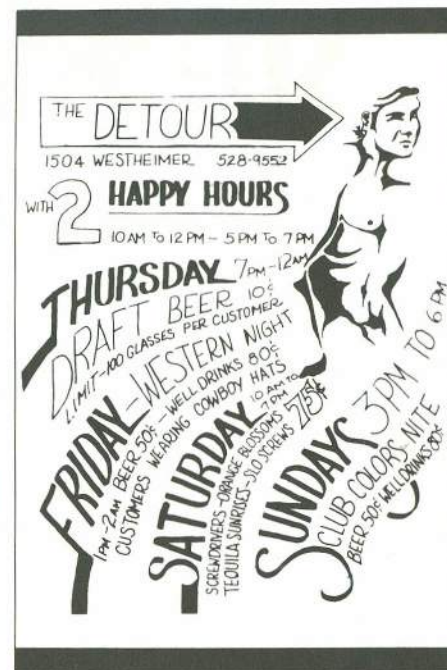 THE DETOUR
1504 WESTHEIMER 528-9552
WITH 2 HAPPY HOURS
10 AM TO 12 PM - 5 PM TO 7 PM
THURSDAY 7PM-12AM
DRAFT BEER 10¢
LIMIT-100 GLASSES PER CUSTOMER
FRIDAY-WESTERN NIGHT
1PM-2AM BEER 50¢-WELL DRINKS 80¢
CUSTOMERS WEARING COWBOY HATS
SATURDAY 10 AM TO 7 PM
SCREWDRIVERS-ORANGE BLOSSOMS
TEQUILA SUNRISES-SLO SCREWS 75¢
SUNDAYS 3 PM TO 6 PM
CLUB COLORS NITE
BEER 50¢ WELL DRINKS 80¢